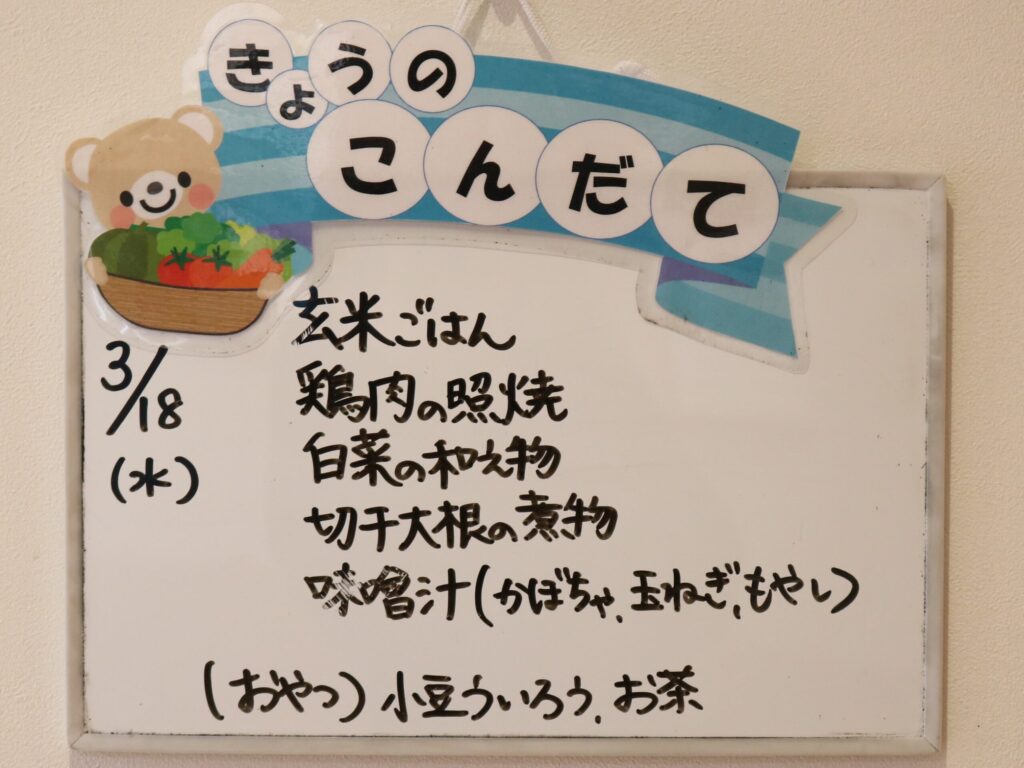 きょうの
こんだて
3/18
(水)
玄米ごはん
鶏肉の照焼
白菜の和え物
切干大根の煮物
味噌汁(かぼちゃ、玉ねぎ、もやし)
(おやつ) 小豆ういろう、お茶